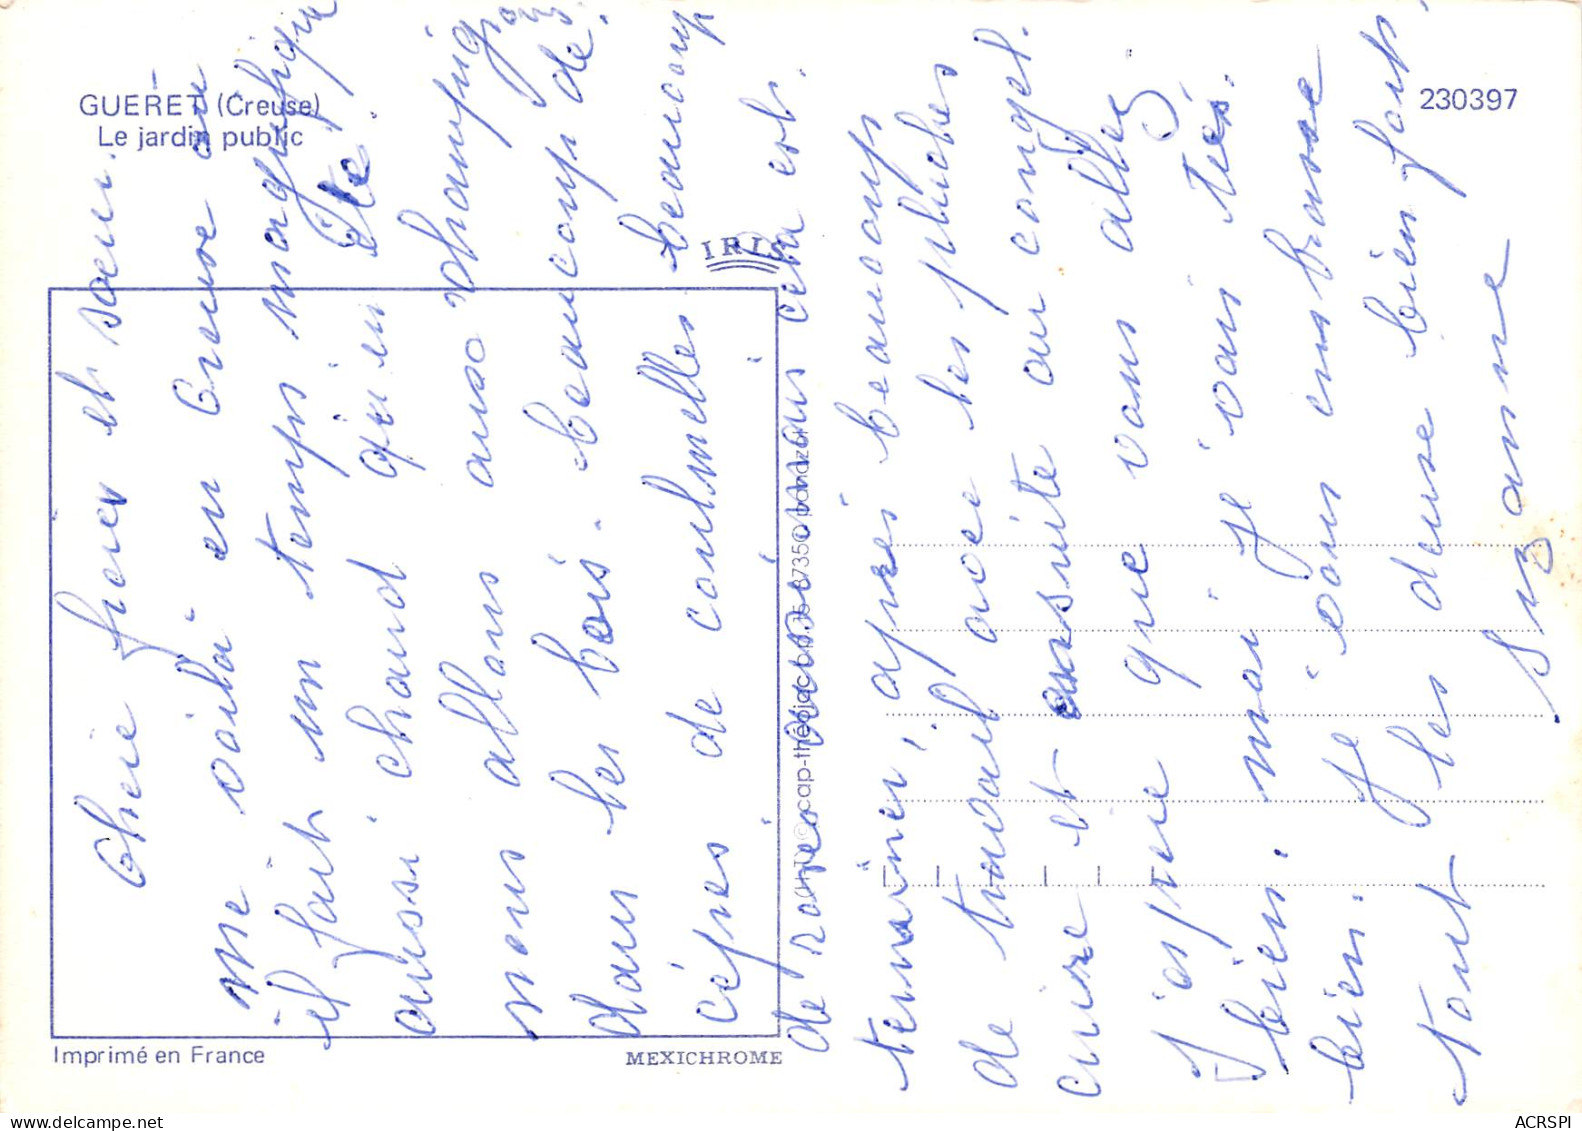 GUERET (Creuse)
Le jardin public
230397
IRIS
Imprimé en France
MEXICHROME
cap-théojac b.p. 35 87350 panazol
Cherie frere et soeur.
me voila en Creuse ou
il fait un temps magnifique
aussi chaud qu'en été
nous allons aux champignons
dans les bois. beaucoup de
cépes de coulmelles beaucoup
de cela est
terminer, apres beaucoup
de travail avec les pluches
cuire et ensuite au congel.
J'espere que vous allez
bien. moi je vais tres
bien. je vous embrasse
tout les deux bien fort.
Suzanne
ACRSPI